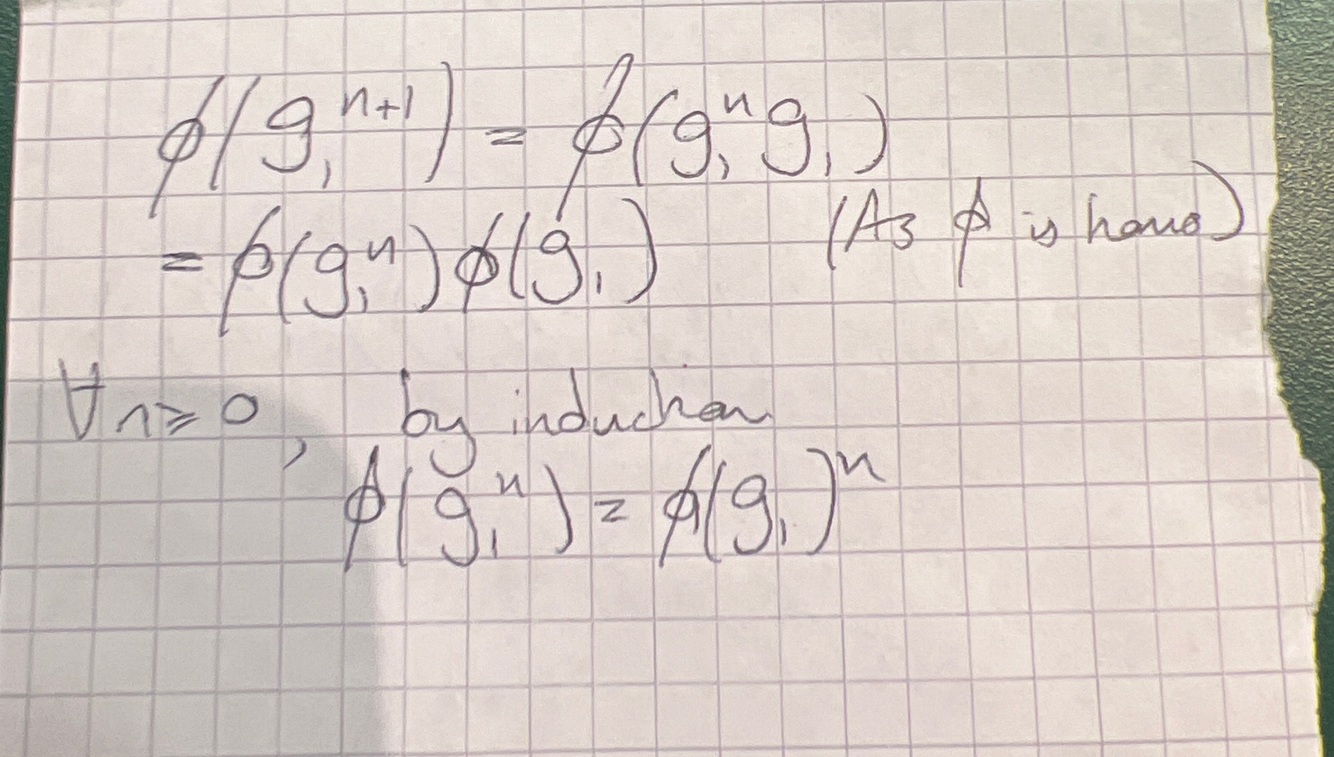 ϕ(g₁ⁿ⁺¹) = ϕ(g₁ⁿ g₁)
= ϕ(g₁ⁿ) ϕ(g₁) (As ϕ is homo)
∀n ≥ 0, by induction
ϕ(g₁ⁿ) = ϕ(g₁)ⁿ